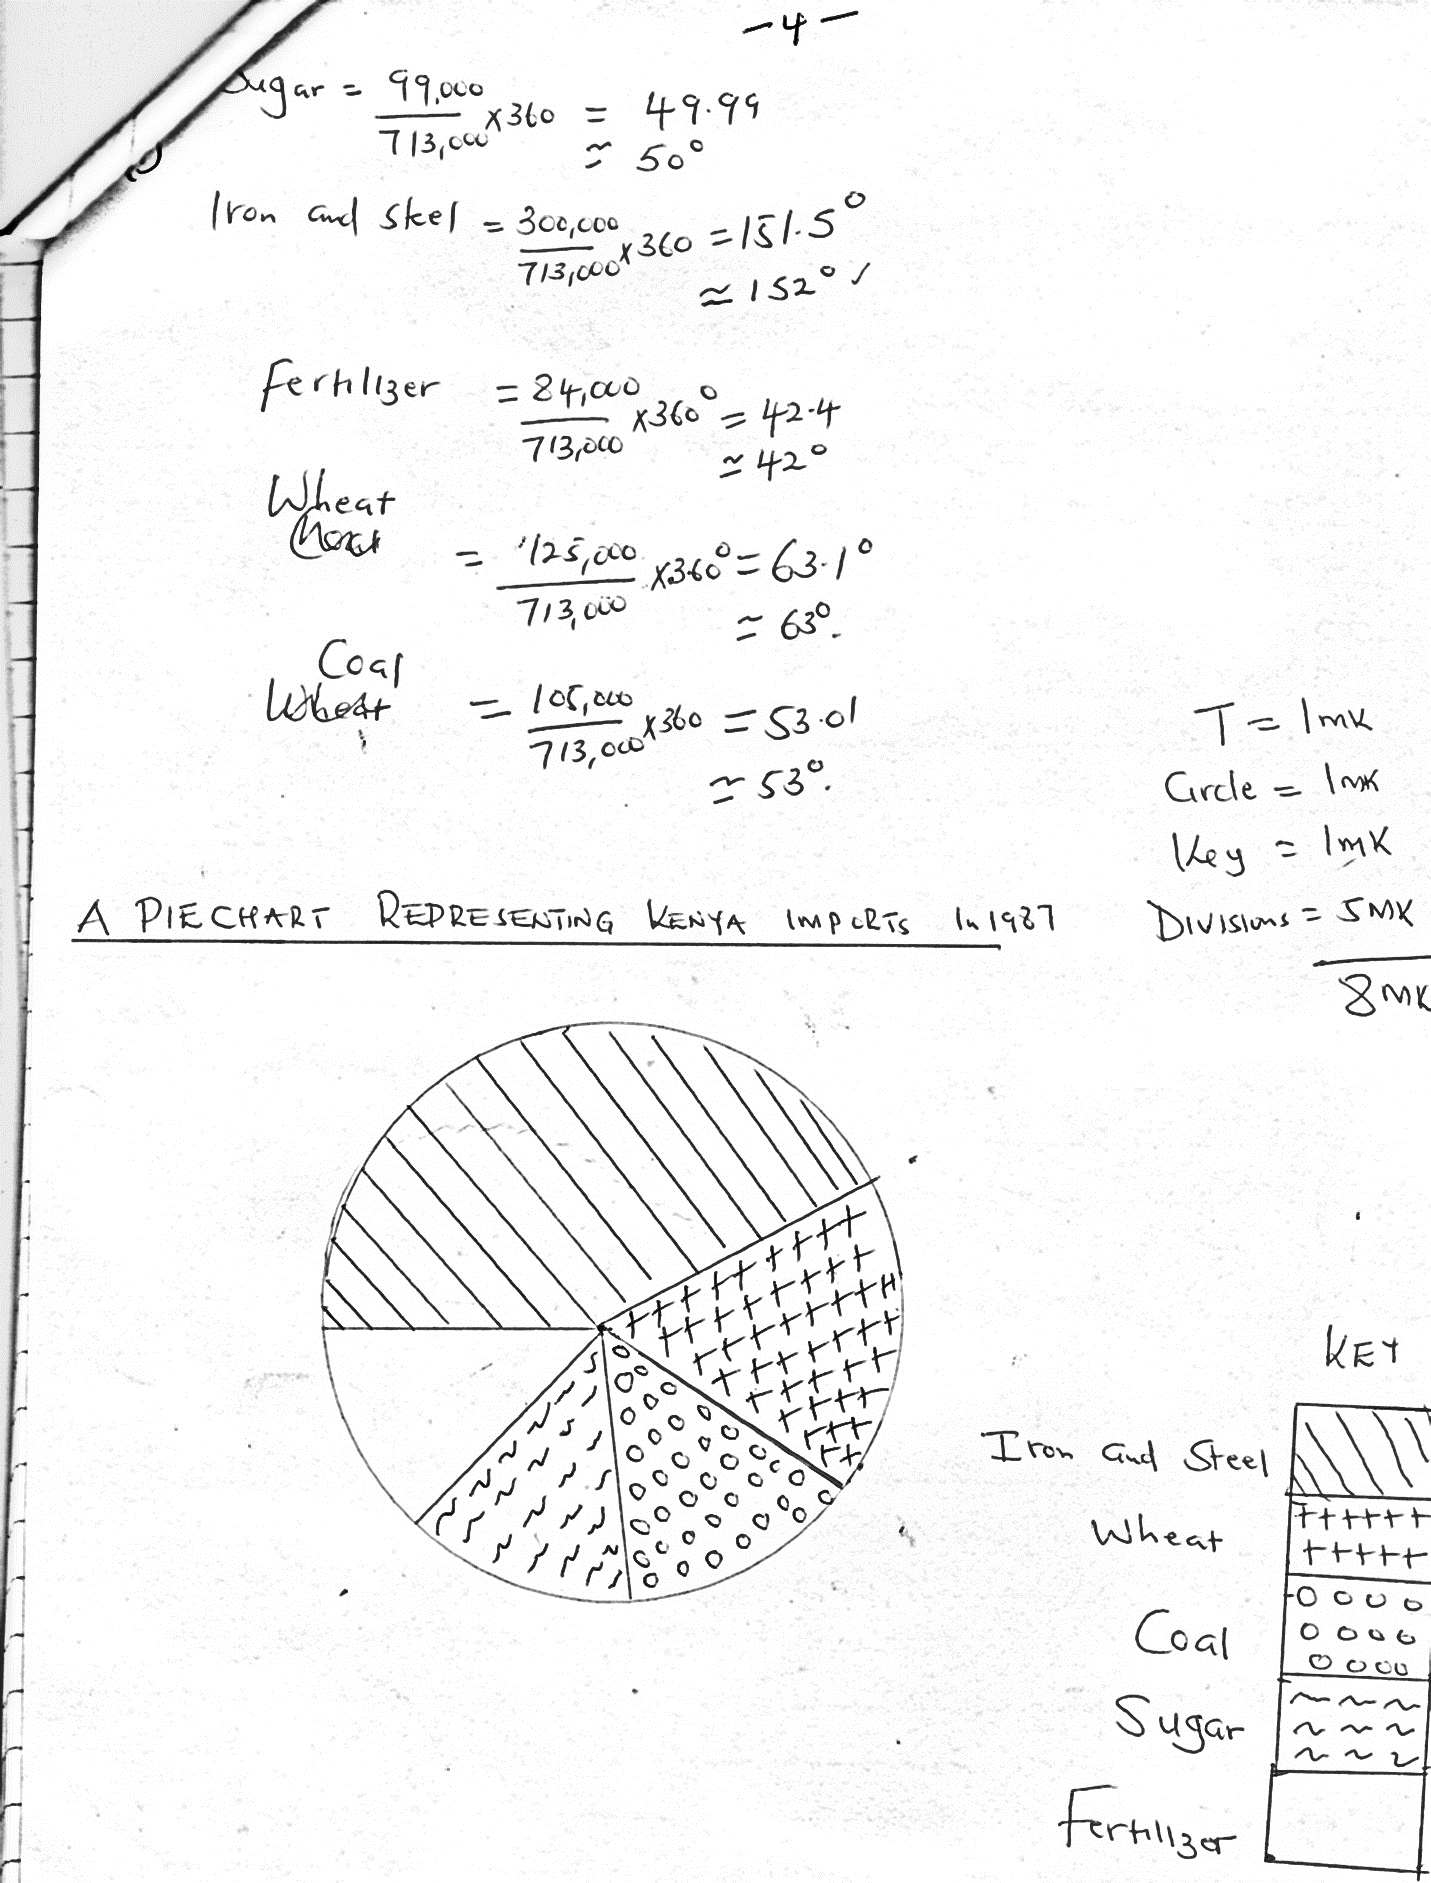 -4-
Sugar = 99,000/713,000 x360 = 49.99
≃ 50°
Iron and steel = 300,000/713,000 x360 = 151.5°
≃ 152° ✓
Fertilizer = 84,000/713,000 x360° = 42.4
≃ 42°
Wheat
= 125,000/713,000 x360° = 63.1°
≃ 63°.
Coal
Wheat = 105,000/713,000 x360 = 53.01
≃ 53°.
T = 1mk
Circle = 1mk
Key = 1mk
Divisions = 5mk
8mk
A PIECHART REPRESENTING KENYA IMPORTS In 1987
KEY
Iron and Steel
Wheat
Coal
Sugar
Fertilizer